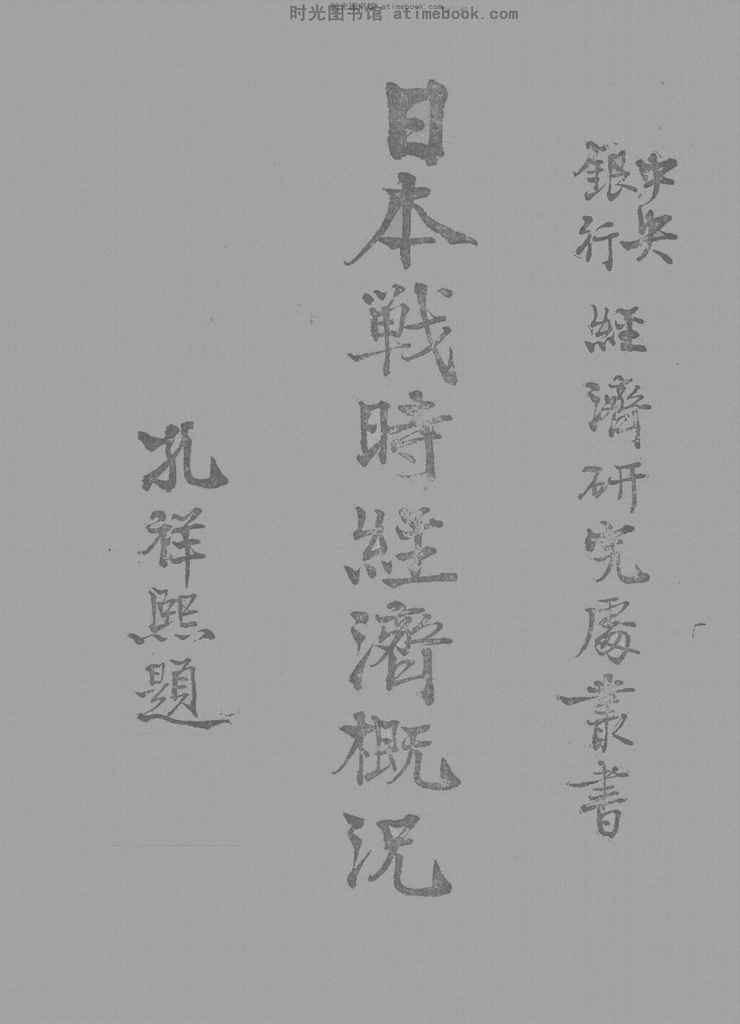 时光图书馆 atimebook.com
中央銀行 經濟研究處叢書
日本戦時経濟概況
孔祥熙題